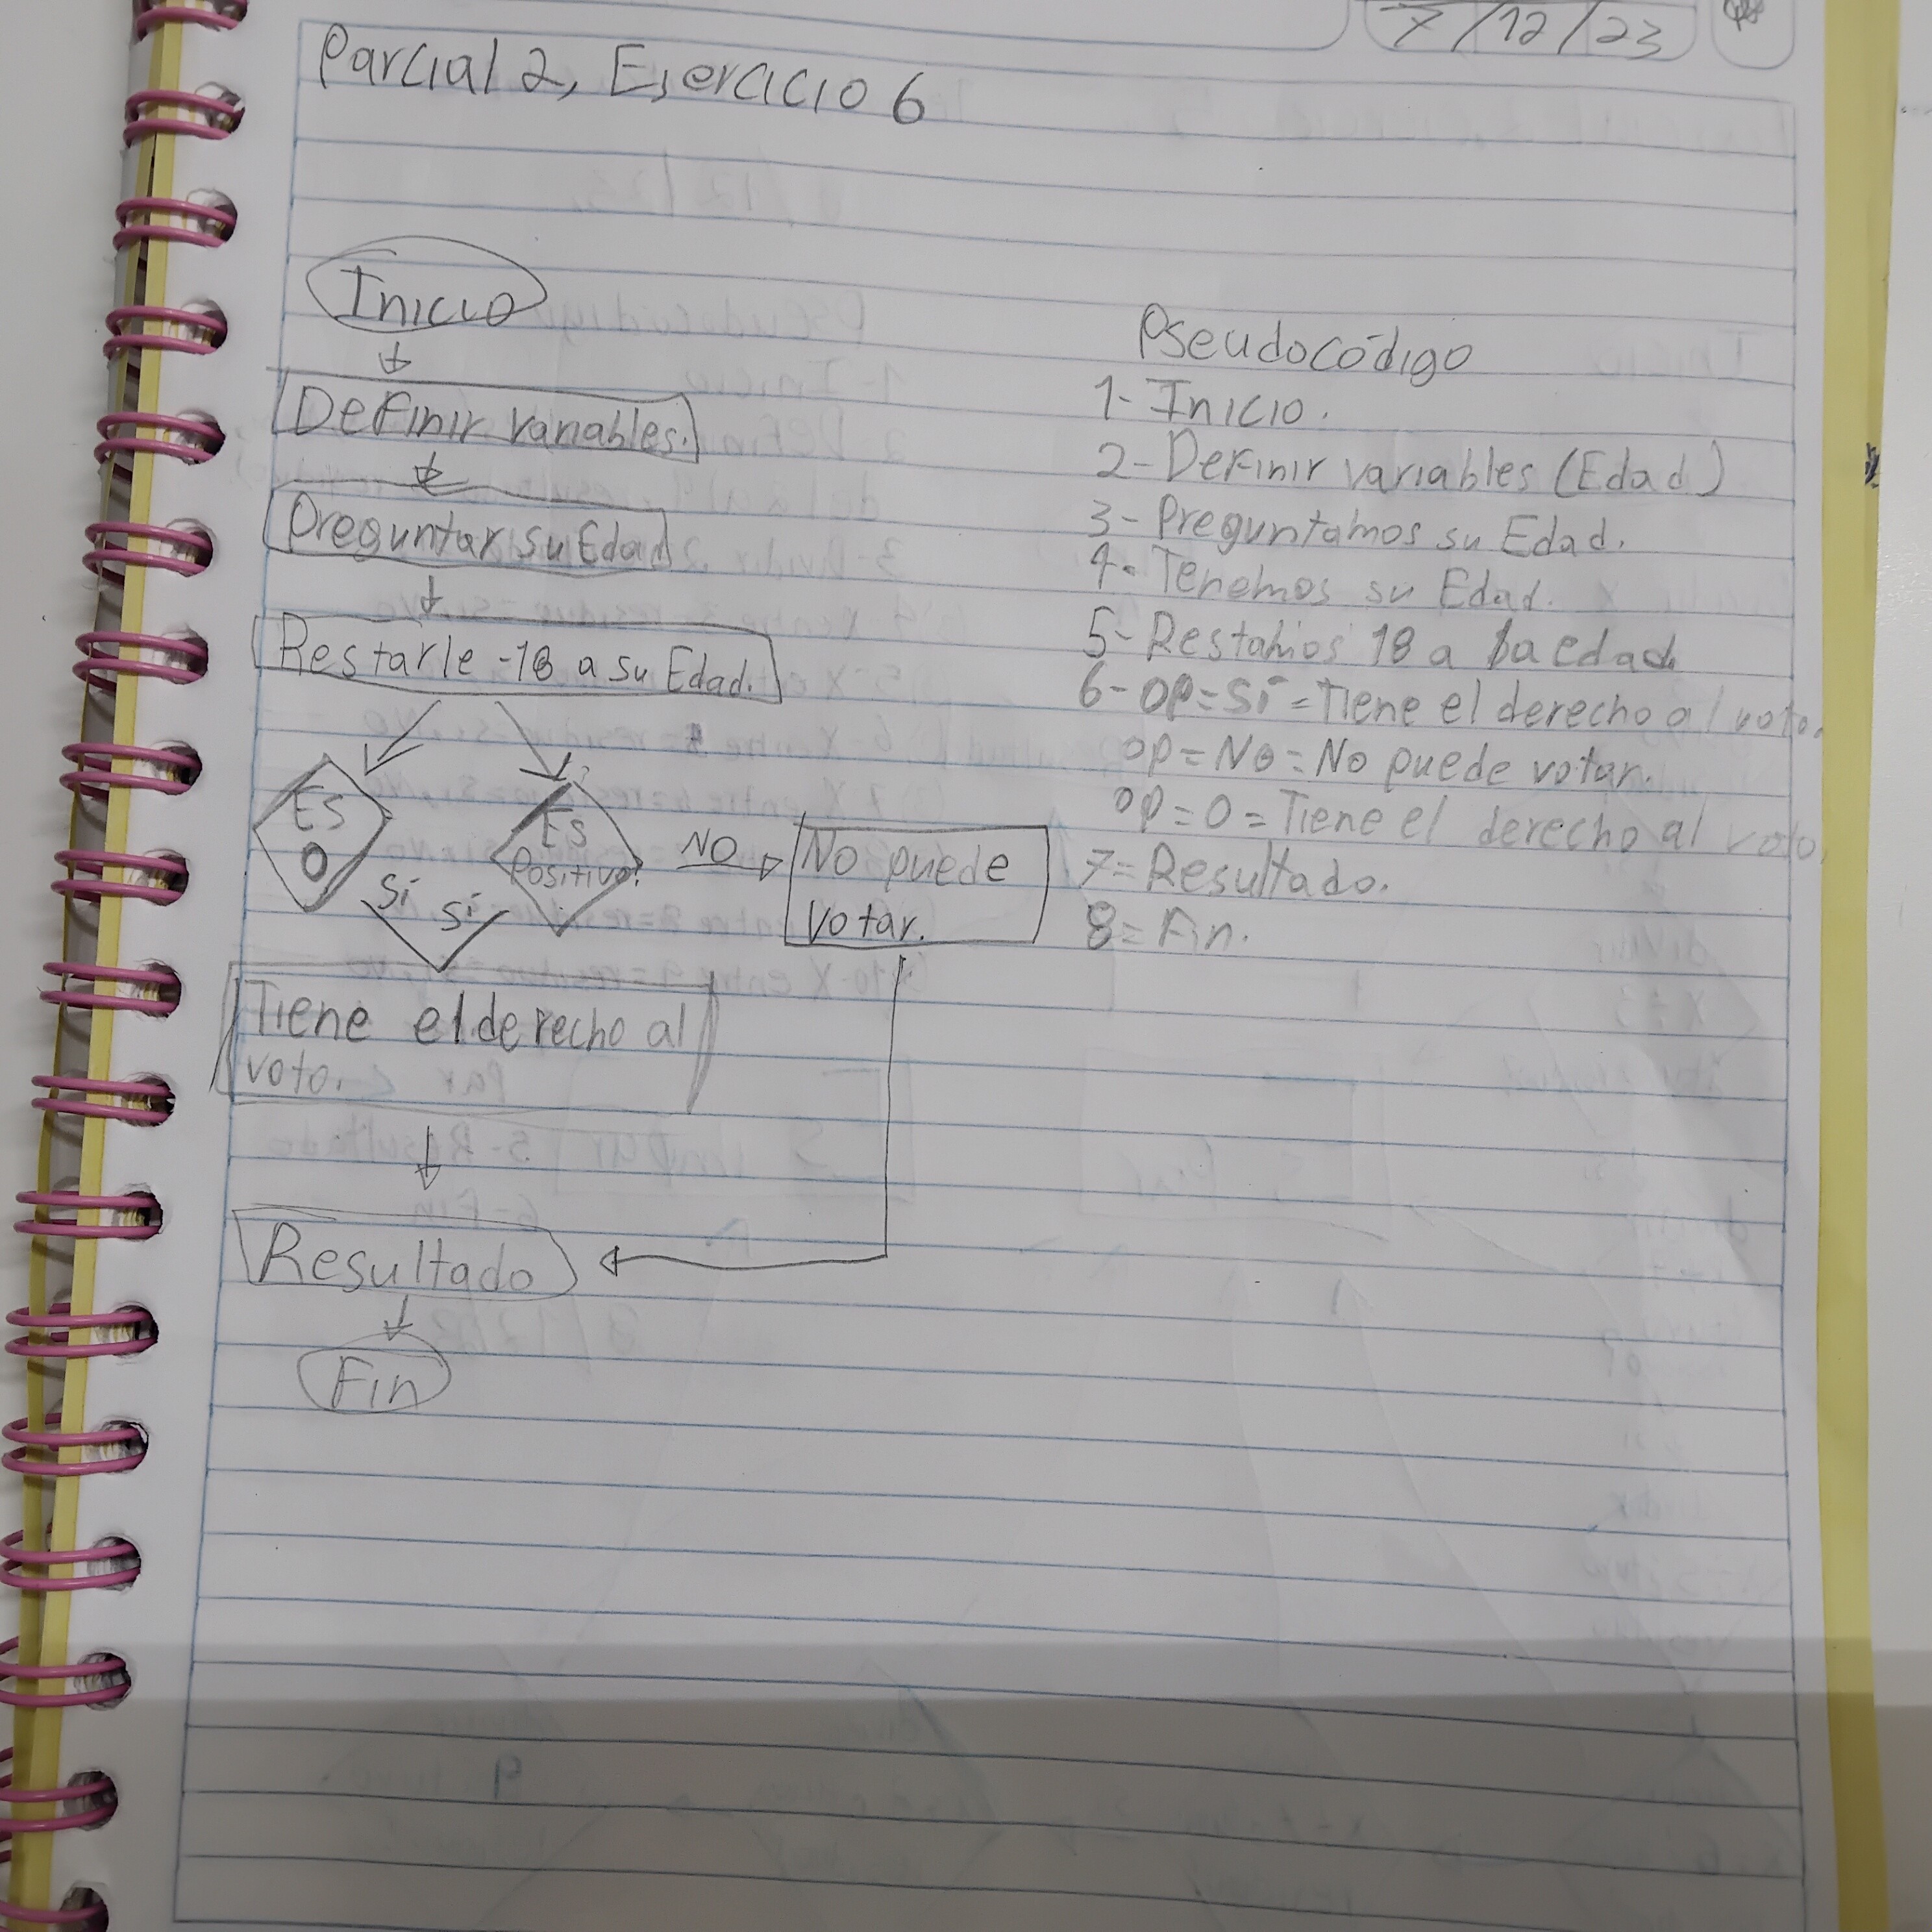 7/12/23
Parcial 2, Ejercicio 6
Inicio
Definir variables.
Preguntar su Edad
Restarle -18 a su Edad.
Es
0
Es
Positivo?
NO
No puede
votar.
Sí
Sí
Tiene el derecho al
voto.
Resultado
Fin
Pseudocódigo
1- Inicio.
2- Definir variables (Edad)
3- Preguntamos su Edad.
4- Tenemos su Edad.
5- Restamos 18 a la edad
6- OP=Sí=Tiene el derecho al voto.
OP=No=No puede votar.
OP=0=Tiene el derecho al voto.
7= Resultado.
8= Fin.